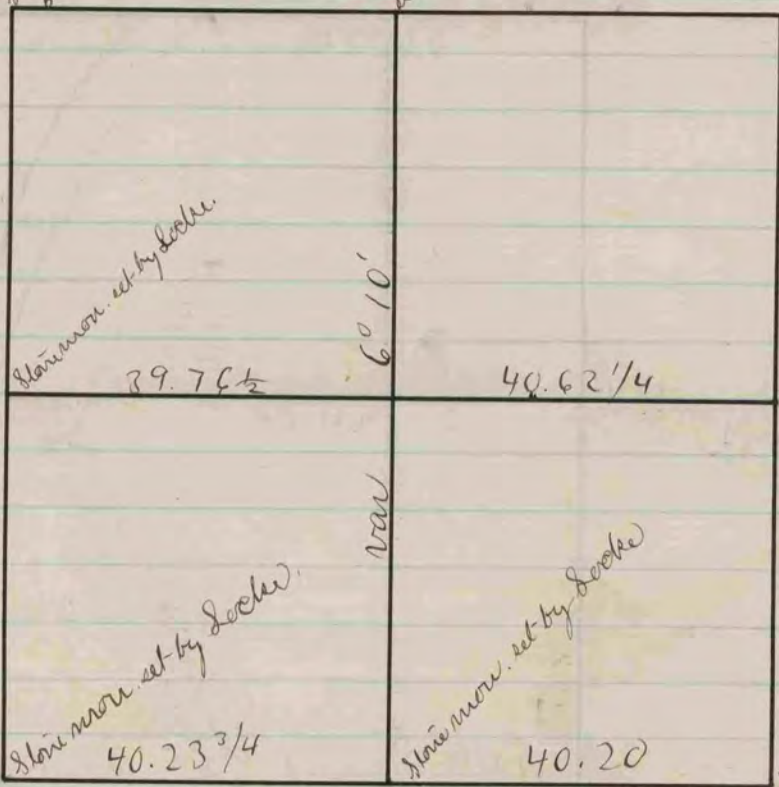 Stone mon. set by Locke.
39.76 1/2
6° 10'
40.62 1/4
var
Stone mon. set by Locke.
40.23 3/4
Stone mon. set by Locke
40.20